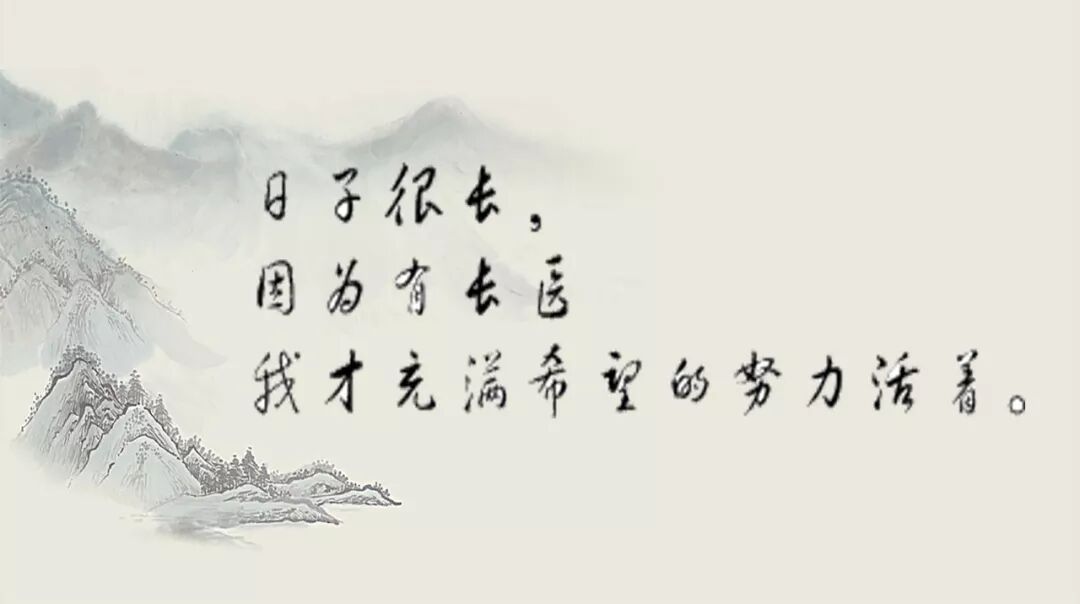 日子很长，
因为有长医
我才充满希望的努力活着。